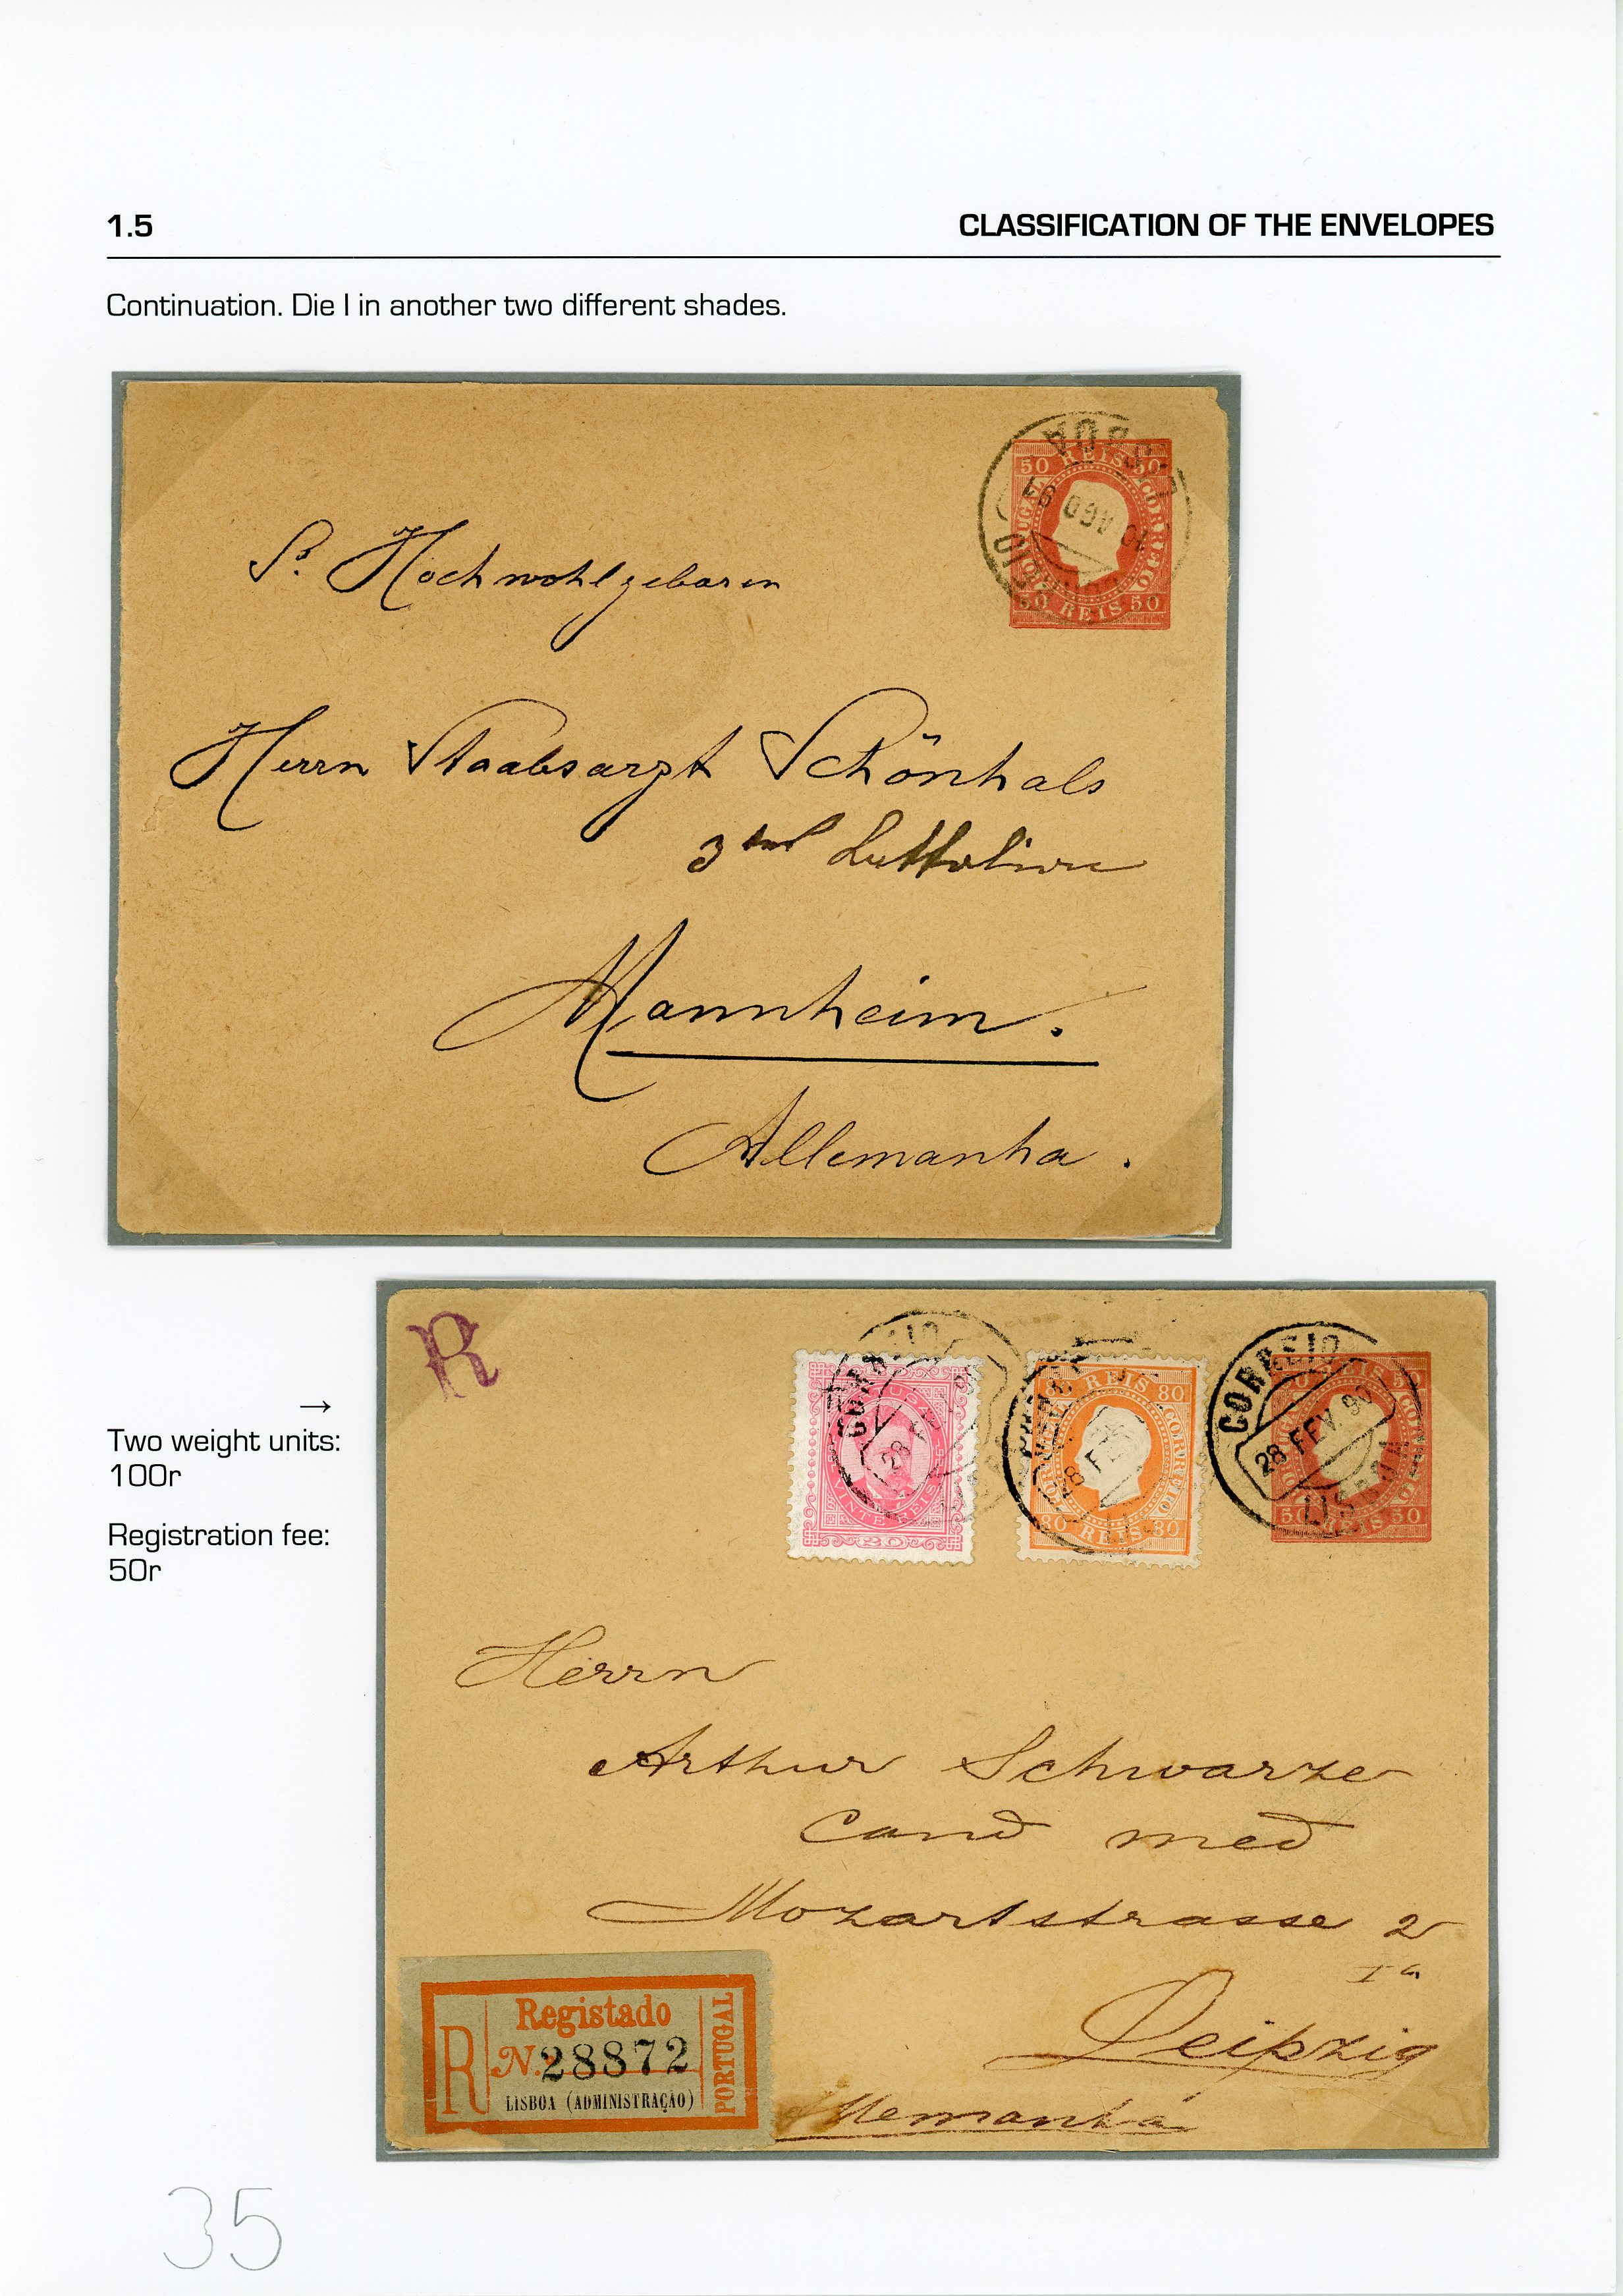 1.5 CLASSIFICATION OF THE ENVELOPES
Continuation. Die I in another two different shades.
50 REIS 50
CORREIO
50 REIS 50
10 AGO 91
Sr. Hochwohlgeboren
Herrn Staabsarzt Schönhals
3
Mannheim.
Allemanha.
→
Two weight units:
100r
Registration fee:
50r
R
CORREIO
28 FEV 90
LISBOA
VINTE REIS
20
80 REIS 80
CORREIO
80 REIS 80
28 FEV
50 REIS 50
Herrn
Arthur Schwarze
cand med
Mozartstrasse 2
Leipzig
Allemanha
R
Registado
N. 28872
LISBOA (ADMINISTRAÇÃO)
PORTUGAL
35